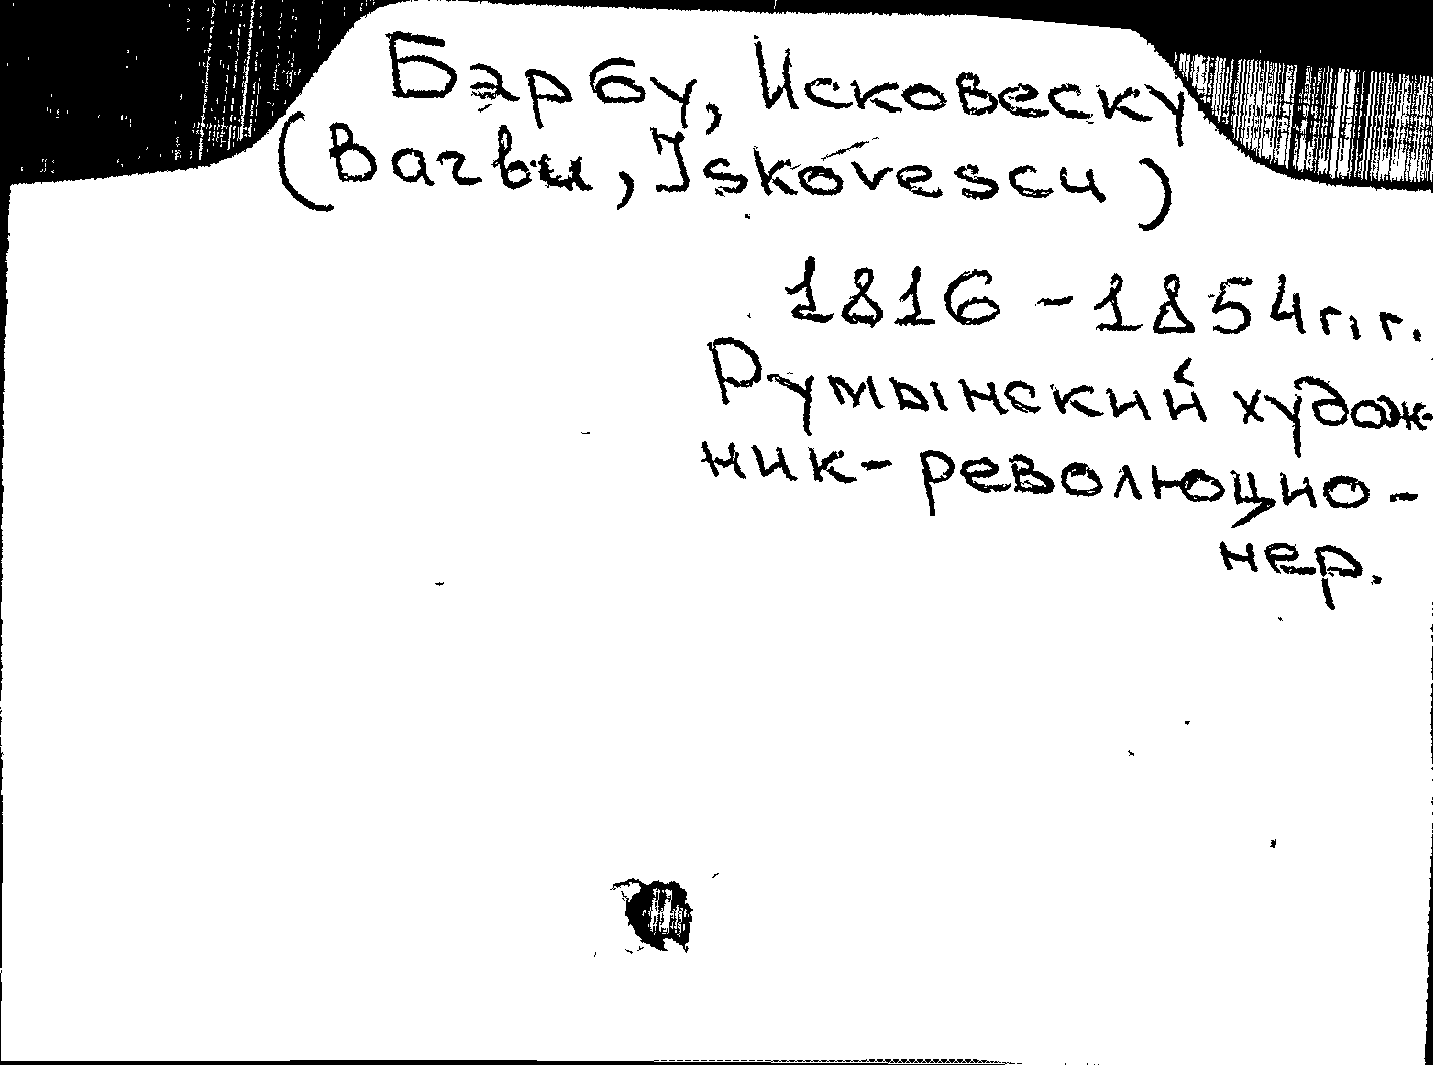 Бэрбу, Исковеску
(Barbu, Iskovescu)
1816 - 1854 г.г.
Румынский худож-
ник-революцио-
нер.